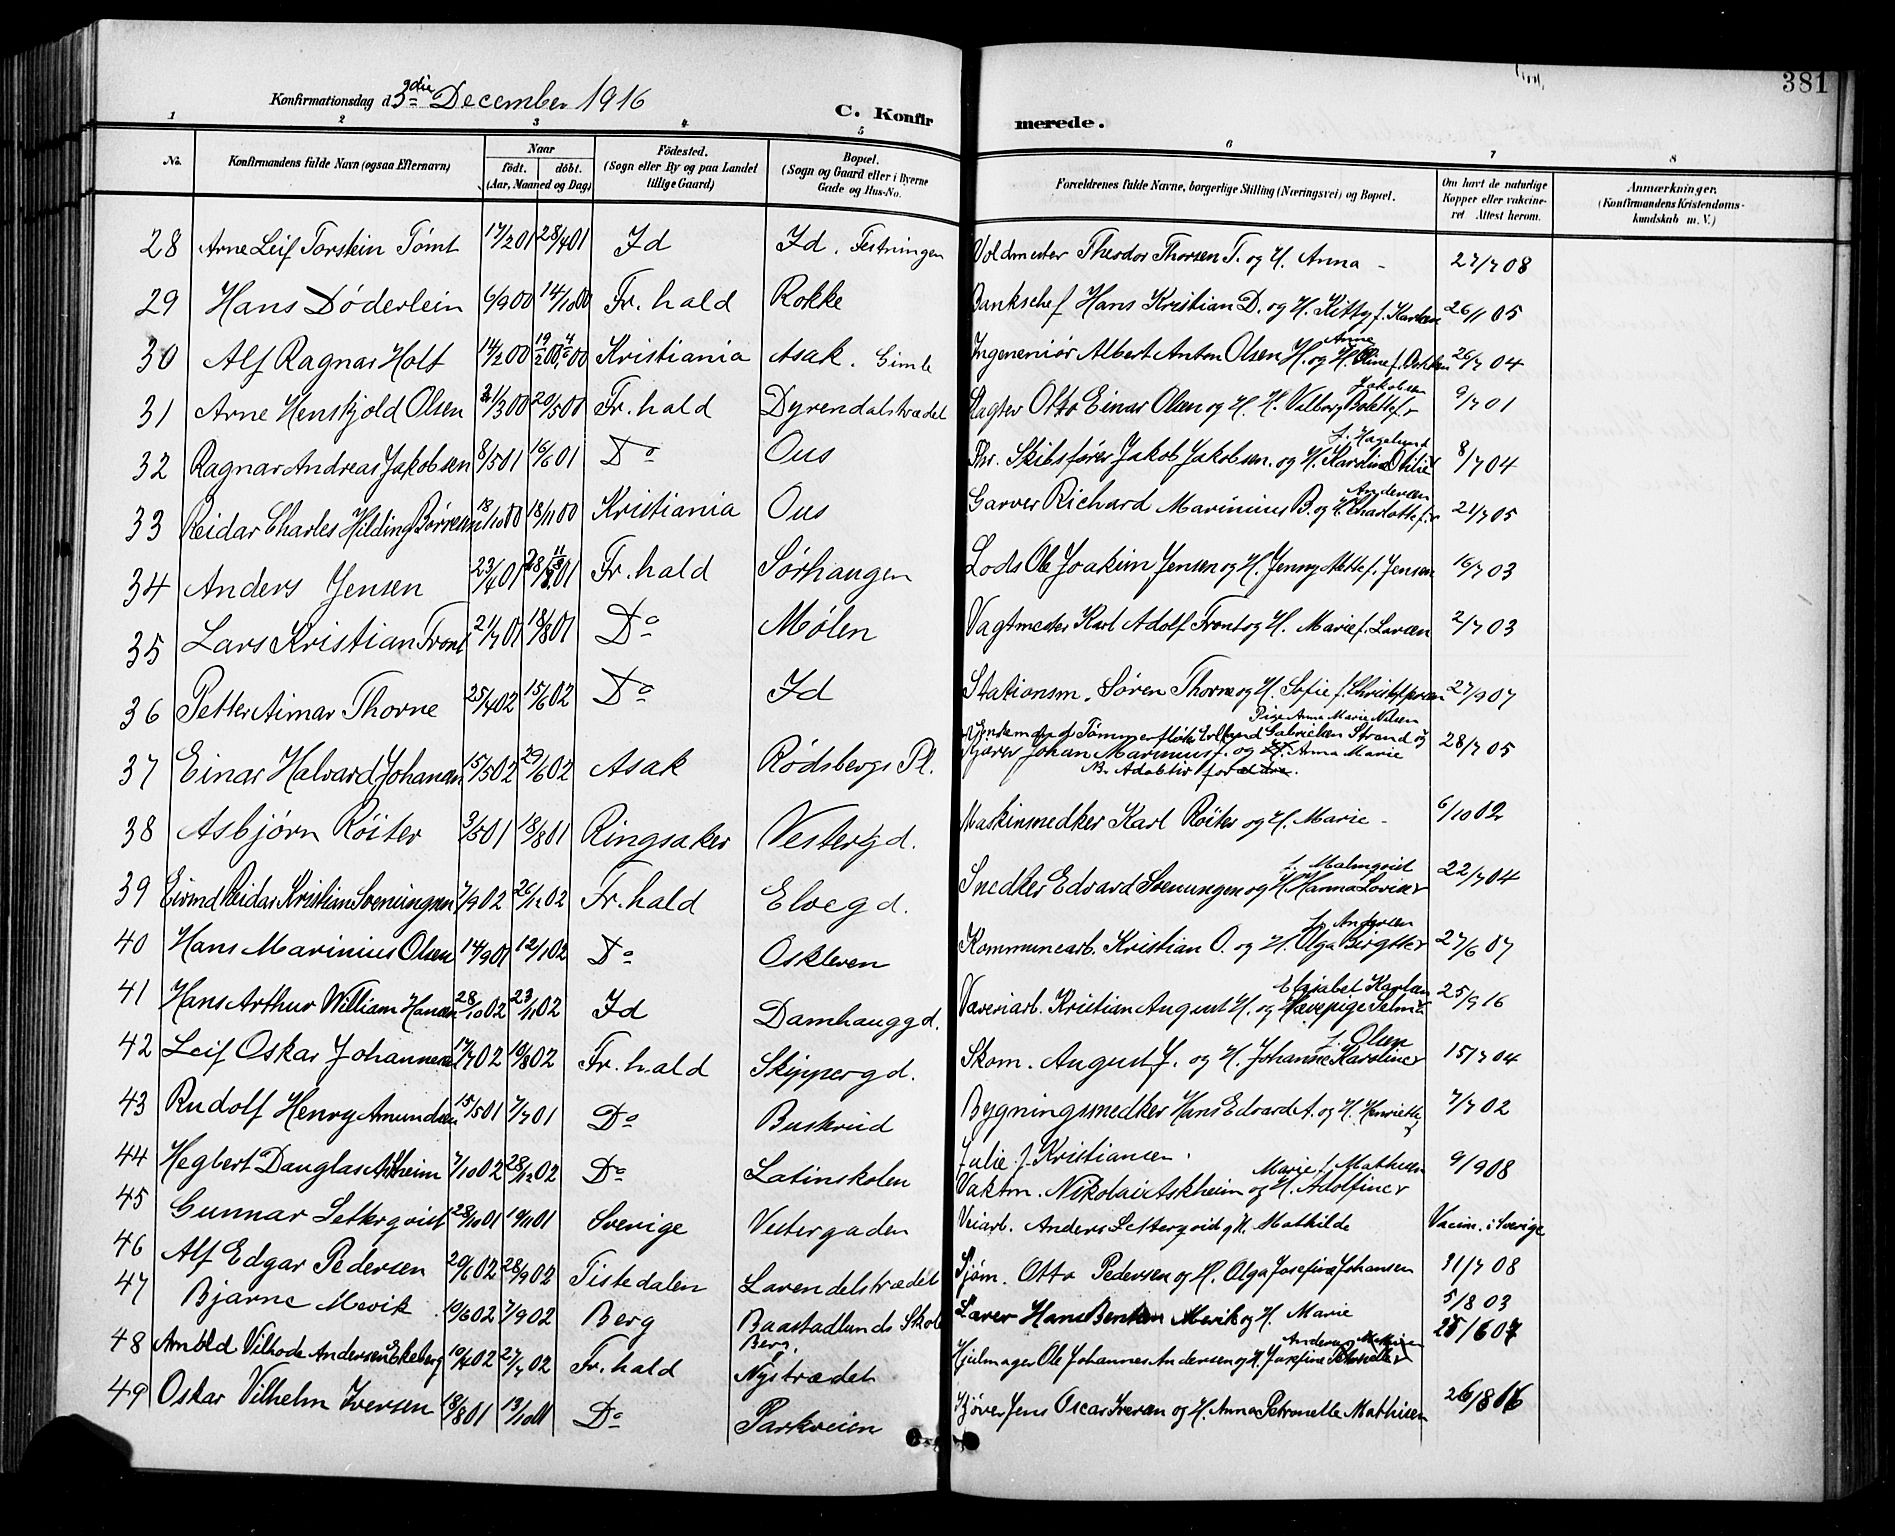 381
Konfirmationsdag d. 3die December 1916
C. Konfirmerede.
1 2 3 4 5 6 7 8
No. Konfirmandens fulde Navn (ogsaa Efternavn) Naar født. døbt. (Aar, Maaned og Dag) Fødested. (Sogn eller By og paa Landet tillige Gaard) Bopæl. (Sogn og Gaard eller i Byerne Gade og Hus-No. Forældrenes fulde Navne, borgerlige Stilling (Næringsvei) og Bopæl. Om havt de naturlige Kopper eller vakcineret. Attest herom. Anmærkninger. (Konfirmandens Kristendomskundskab m. V.)
28 Arne Leif Torstein Tømt 17/2 01 28/4 01 Id Id. Festningen Voldmester Theodor Thorsen T. og H. Anna - 27/7 08
29 Hans Døderlein 6/9 00 14/10 00 Fr. hald Rokke Bankschef Hans Kristian D. og H. Kitty f. 26/11 05
30 Alf Ragnar Holt 14/2 00 Kristiania Asak. Gimle Ingeneniør Albert Anton Olsen H. og H. Anne 26/7 04
31 Arne Henskjold Olsen 21/3 00 20/5 00 Fr. hald Dyrendalstrædet Slagter Otto Einar Olsen og H. H. Valborg Bolette f. Jakobsen 9/7 01
32 Ragnar Andreas Jakobsen 8/5 01 16/6 01 Do Ous Fhr. Skibsfører Jakob Jakobsen. og H. Karoline Otilie f. Hagelund 8/7 04
33 Reidar Charles Hilding Børresen 18/10 00 18/11 00 Kristiania Ous Garver Richard Marinius B. og H. Charlotte f. Andersen 24/7 05
34 Anders Jensen Fr. hald Sørhaugen Lods Ole Joakim Jensen og H. Jenny Mette f. Jensen 16/7 03
35 Lars Kristian Tront 21/7 01 18/8 01 Do Mølen Vagtmester Karl Adolf Tront og H. Marie f. Larsen 2/7 03
36 Petter Aimar Thorne 25/4 02 15/6 02 Do Id Stationsm. Søren Thorne og H. Sofie f. Christoffersen 27/9 07
37 Einar Halvard Johansen 15/5 02 29/6 02 Asak Rødsbergs Pl. Ungkarl Tømmerfløter Erlend Gabrielsen Strand og Pige Anna Marie Nilsen Kjører Johan Marinius J. og H. Anna Marie 28/7 05
NB. Adoptiv forældre.
38 Asbjørn Røiter 3/5 01 18/8 01 Ringsaker Vestergd. Maskinsnedker Karl Røiter og H. Marie - 6/10 02
39 Eivind Reidar Kristian Svenungsen 7/9 02 26/12 02 Fr. hald Elvegd. Snedker Edvard Svenungsen og H. Hanna Lovise f. Malmqvist 22/7 04
40 Hans Marinius Olsen 14/9 01 12/1 02 Do Oskleven Kommunearb. Kristian O. og H. Olga Birgitte f. Andersen 27/6 07
41 Hans Arthur William Hansen 28/10 02 23/11 02 Id Damhauggd. Væveriarb. Kristian August H. og Vævepige Selma Elisabet Karlsen 25/9 16
42 Leif Oskar Johannesen 17/7 02 10/8 02 Fr. hald Skippergd. Skom. August J. og H. Johanne Karoline f. Olsen 15/7 04
43 Rudolf Henry Amundsen 15/5 01 7/7 01 Do Buskrud Bygningssnedker Hans Edvard A. og H. Henriette 7/7 02
Julie f. Kristiansen.
44 Hegbert Dauglas Askheim 7/10 02 28/12 02 Do Latinskolen Vaktm. Nikolai Askheim og H. Adolfine Marie f. Mathisen 9/9 08
45 Gunnar Setterqvist 28/10 01 Sverige Vestergaden Veiarb. Anders Setterqvist og H. Mathilde Vaccin. i Sverige
46 Alf Edgar Pedersen 20/6 02 28/9 02 Tistedalen Lavendelstrædet Sjøm. Otto Pedersen og H. Olga Josefine Johansen 31/7 08
47 Bjarne Mevik 10/6 02 7/9 02 Berg Baastadlunds Skole Berg. Lærer Hans Mevik og H. Marie 5/8 03
48 Arnold Vilhode Andersen Ekeberg Fr. hald Nystrædet Hjulmager Ole Johannes Andersen og H. Josefine 25/6 07
49 Oskar Vilhelm Iversen 18/8 01 13/10 01 Do Parkveien Kjører Jens Oscar Iversen og H. Anna Petronelle Mathisen 26/8